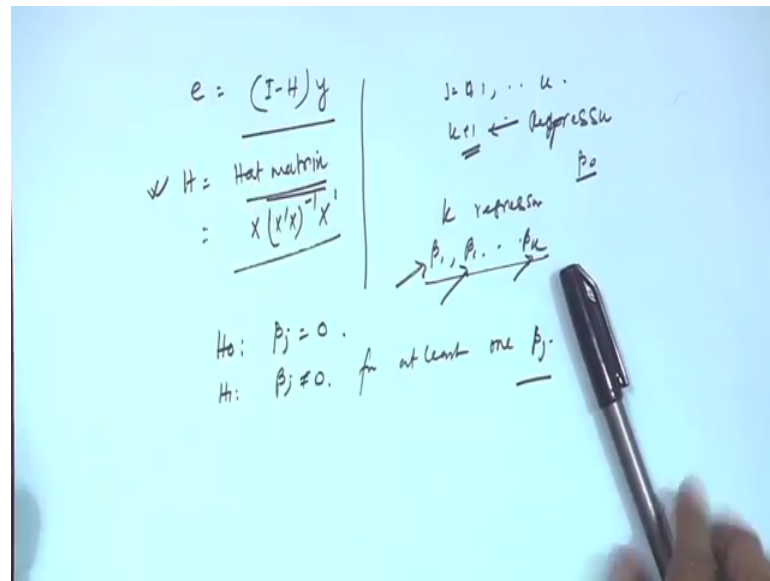 e = (I-H) y
H = Hat matrix
= X(X'X)⁻¹X'
J = 0 1, .. k.
k+1 ← Regressor
β₀
k regressor
β₁, β₂ .. βk
H₀: βj = 0.
H₁: βj ≠ 0. for at least one βj.